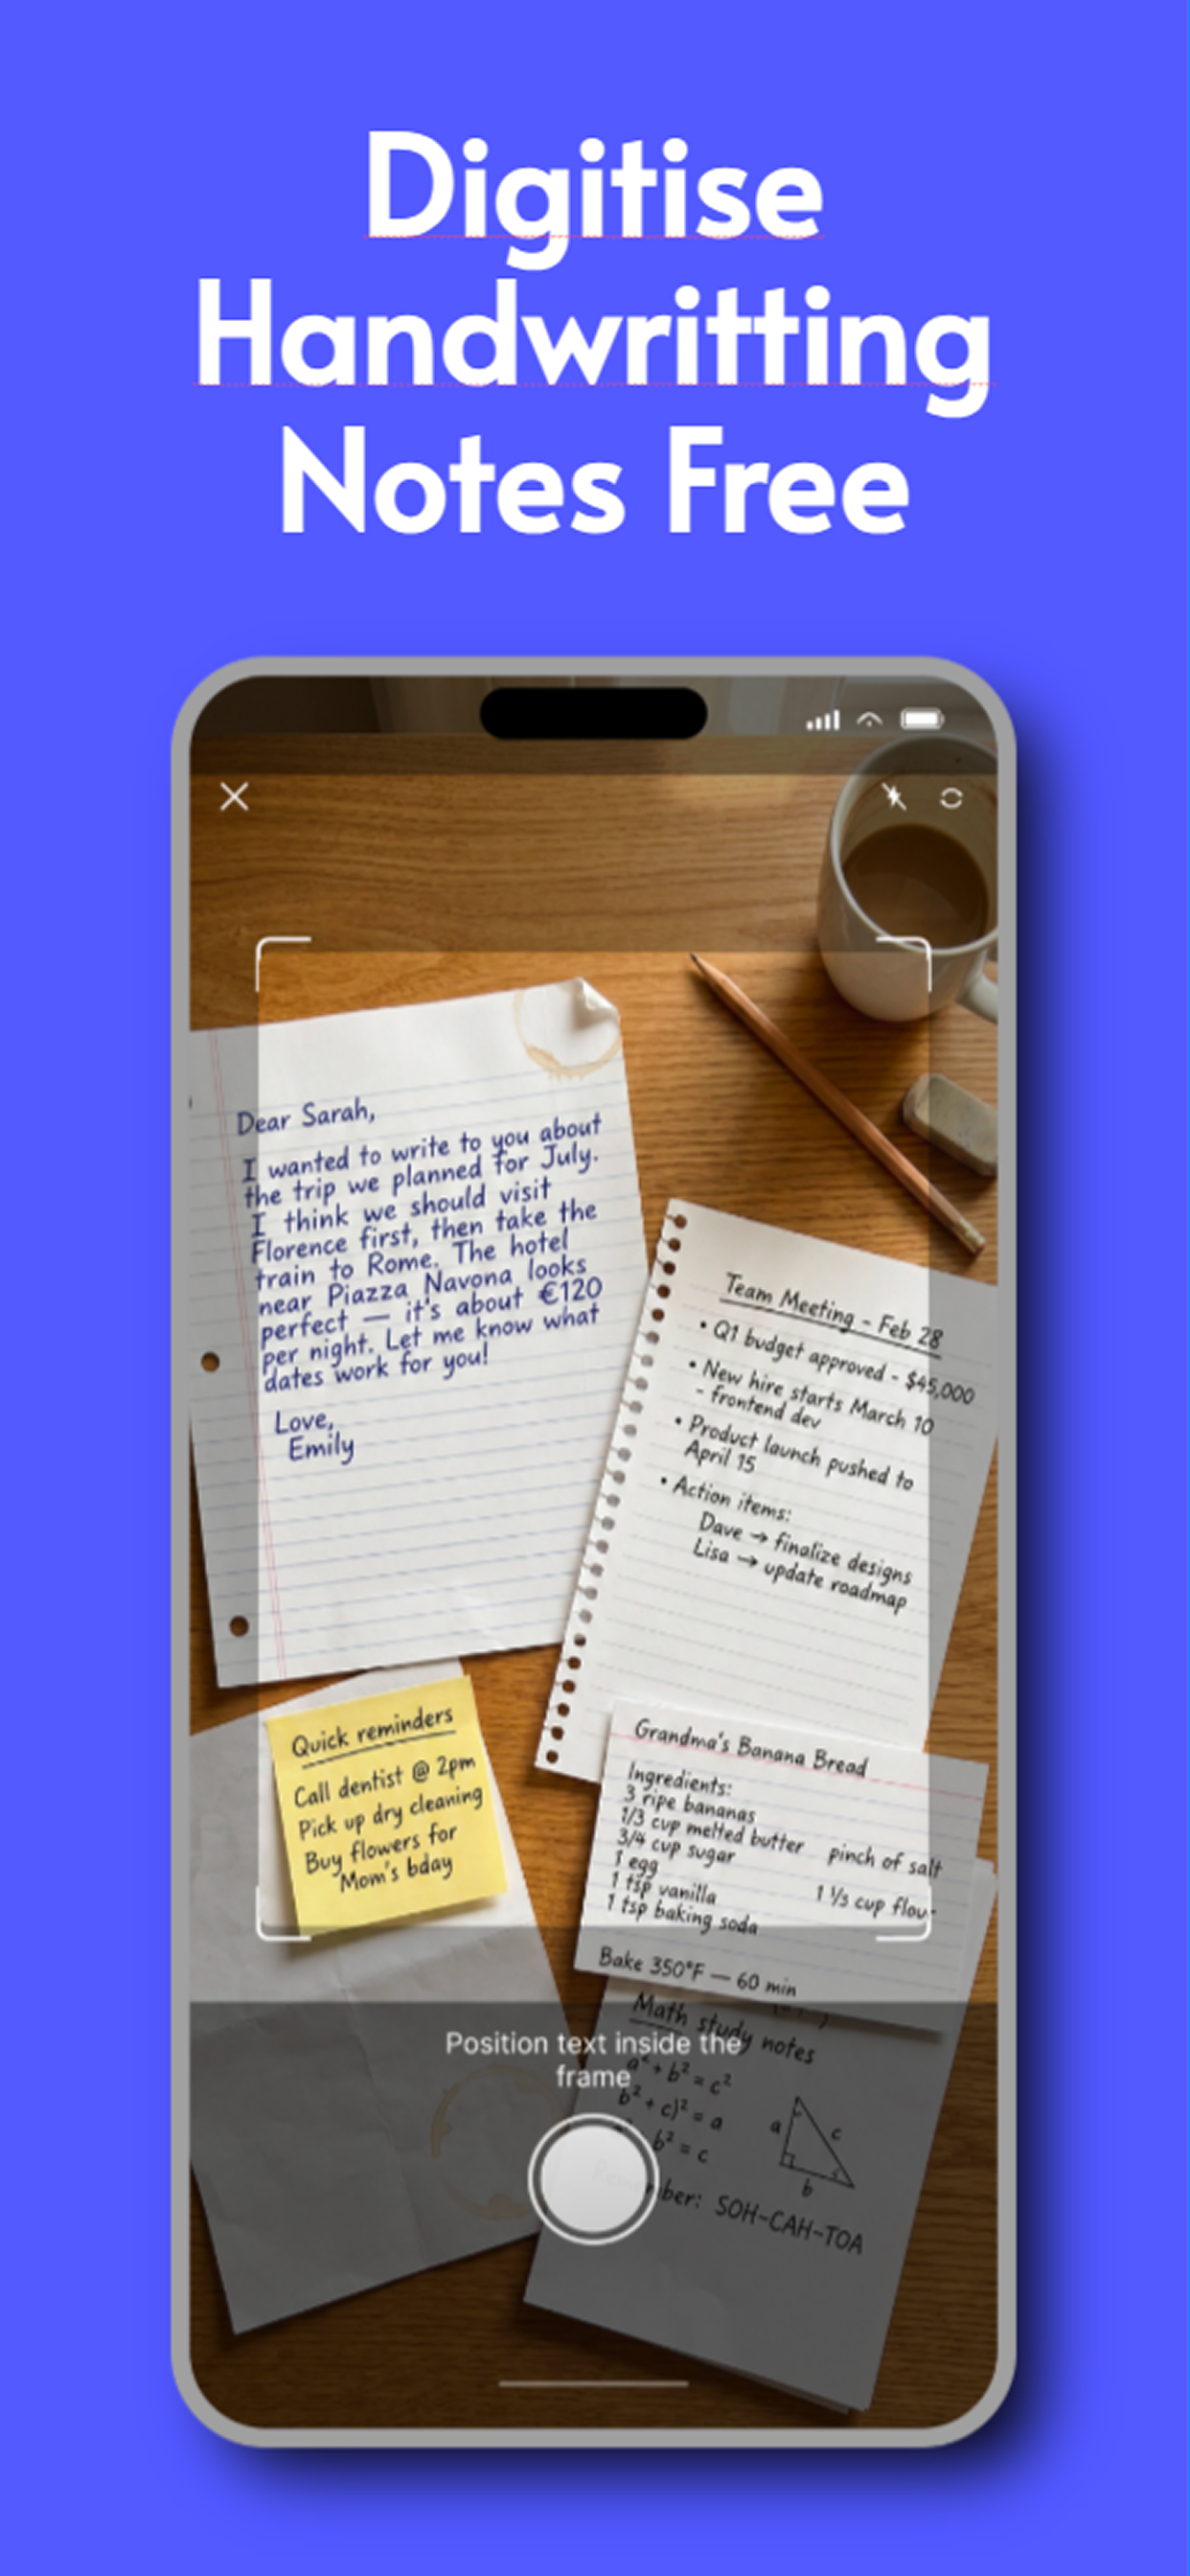 Digitise
Handwritting
Notes Free
Dear Sarah,
I wanted to write to you about
the trip we planned for July.
I think we should visit
Florence first, then take the
train to Rome. The hotel
near Piazza Navona looks
perfect — it's about €120
per night. Let me know what
dates work for you!
Love,
Emily
Team Meeting - Feb 28
• Q1 budget approved - $45,000
• New hire starts March 10
- frontend dev
• Product launch pushed to
April 15
• Action items:
Dave → finalize designs
Lisa → update roadmap
Quick reminders
Call dentist @ 2pm
Pick up dry cleaning
Buy flowers for
Mom's bday
Grandma's Banana Bread
Ingredients:
3 ripe bananas
1/3 cup melted butter
3/4 cup sugar
1 egg
1 tsp vanilla
1 tsp baking soda
pinch of salt
1 ⅓ cup flour
Bake 350°F — 60 min
Position text inside the
frame
Math study notes
a² + b² = c²
b² + c)² = a
b² = c
a
c
b
SOH-CAH-TOA